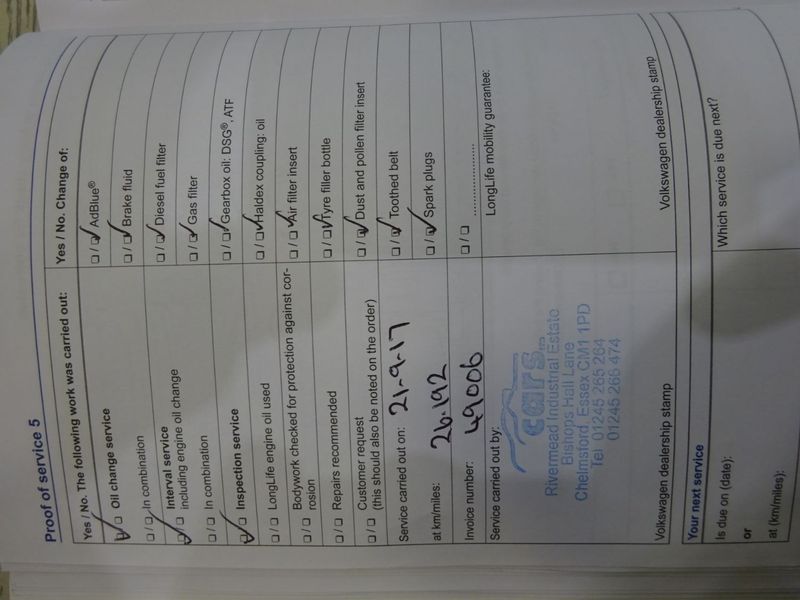 Proof of service 5
Yes / No. The following work was carried out:
Oil change service
In combination
Interval service
including engine oil change
In combination
Inspection service
LongLife engine oil used
Bodywork checked for protection against cor-
rosion
Repairs recommended
Customer request
(this should also be noted on the order)
Service carried out on: 21-9-17
at km/miles: 26.192
Invoice number: 49006
Service carried out by:
cars
Rivermead Industrial Estate
Bishops Hall Lane
Chelmsford, Essex CM1 1PD
Tel: 01245 265 264
01245 266 474
Volkswagen dealership stamp
Yes / No. Change of:
AdBlue®
Brake fluid
Diesel fuel filter
Gas filter
Gearbox oil: DSG®, ATF
Haldex coupling: oil
Air filter insert
Tyre filler bottle
Dust and pollen filter insert
Toothed belt
Spark plugs
......................
LongLife mobility guarantee:
Volkswagen dealership stamp
Your next service
Is due on (date):
or
at (km/miles):
Which service is due next?